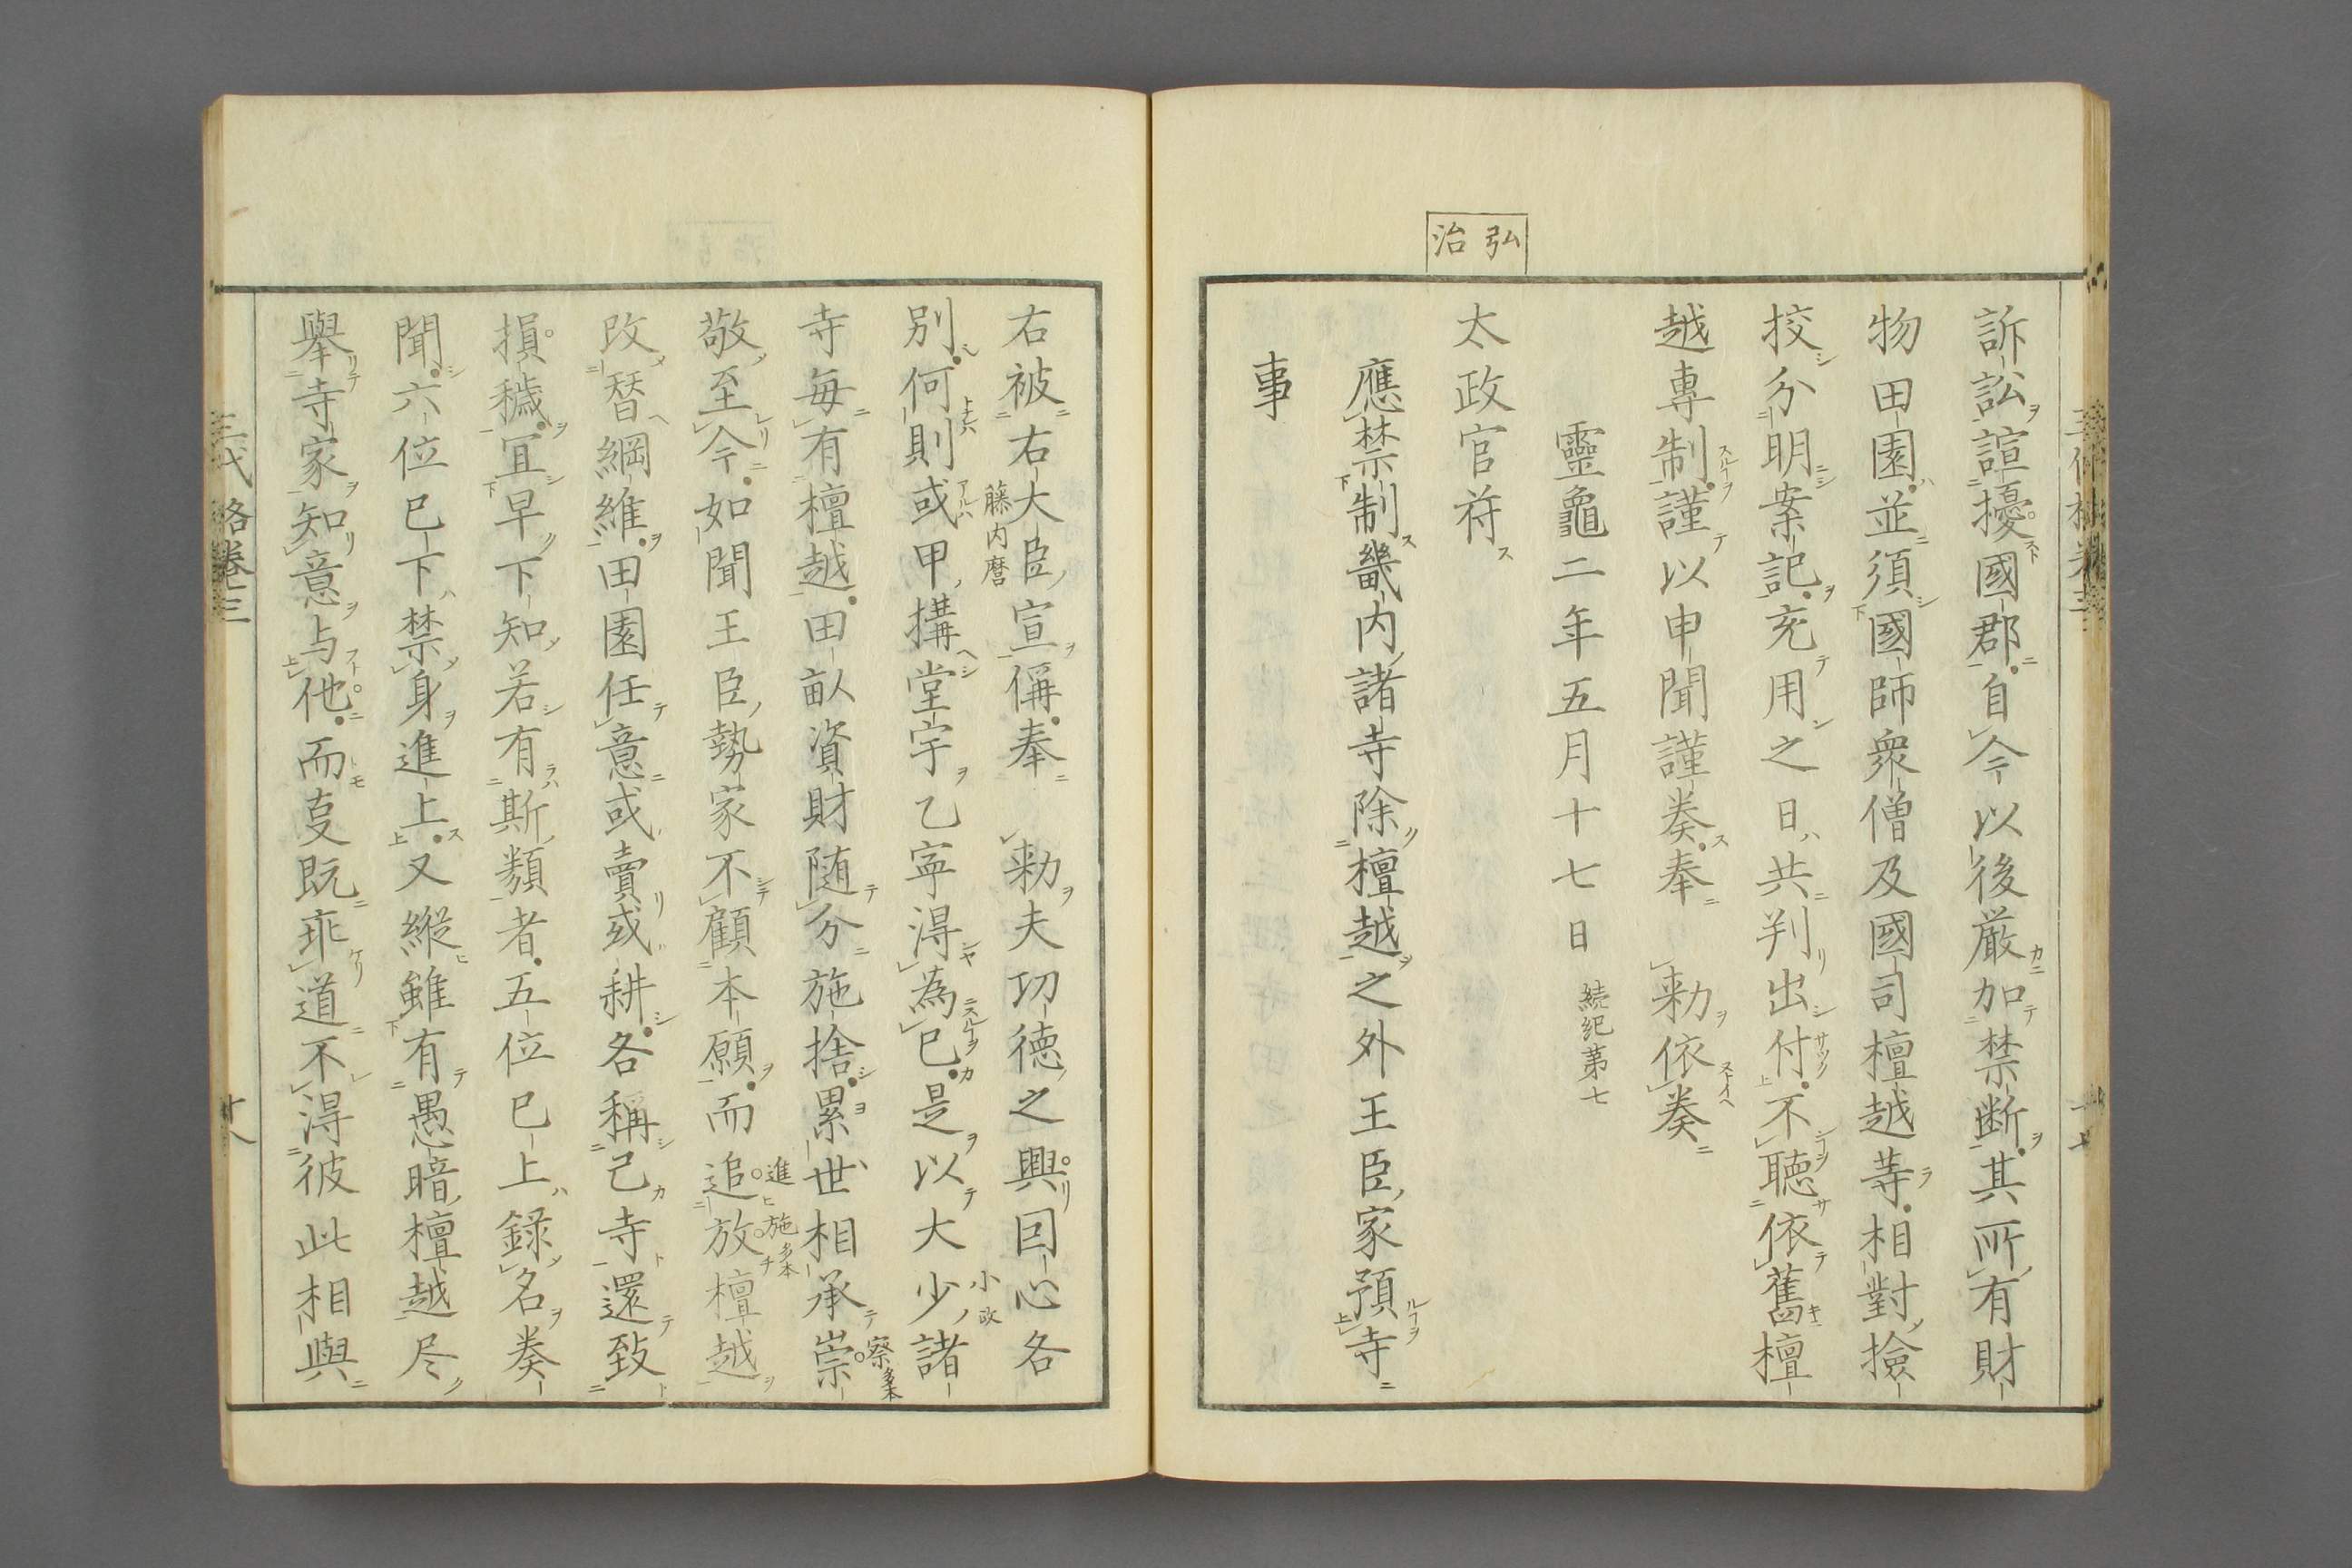 弘治
訴訟諠擾國郡自今以後厳加禁断其所有財
物田園並須國師衆僧及國司檀越䓁相對撿
挍分明案記充用之日共判出付不聴依舊檀
越專制謹以申聞謹奏奉　勅依奏
靈龜二年五月十七日 続紀第七
太政官符
應禁制畿内諸寺除檀越之外王臣家預寺
事
右被右大臣宣偁奉　勅夫功徳之興囘心各
藤内麿
別何則或甲搆堂宇乙寧得為已是以大少諸
小政
寺毎有檀越田畝資財随分施捨累世相承崇
察多本
敬至今如聞王臣勢家不顧本願而追放檀越
進施多本
改替綱維田園任意或賣或耕各稱己寺還致
損穢冝早下知若有斯類者五位已上録名奏
聞六位已下禁身進上又縱雖有愚暗檀越尽
舉寺家知意与他而叓既乖道不得彼此相與
三代格巻三
十八